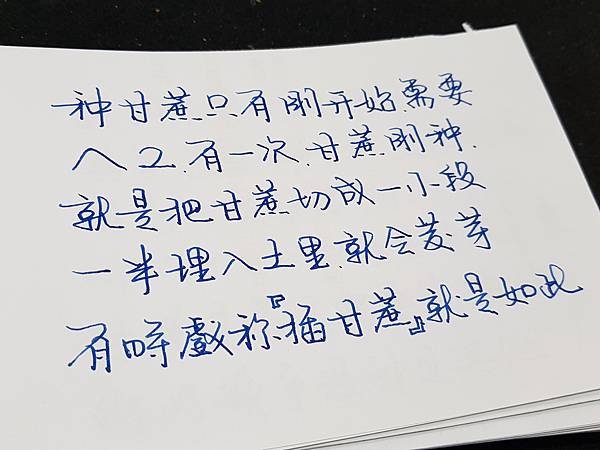 种甘蔗只有刚开始需要
人工.有一次.甘蔗刚种.
就是把甘蔗切成一小段
一半埋入土里.就会发芽
有時戲称『插甘蔗』就是如此